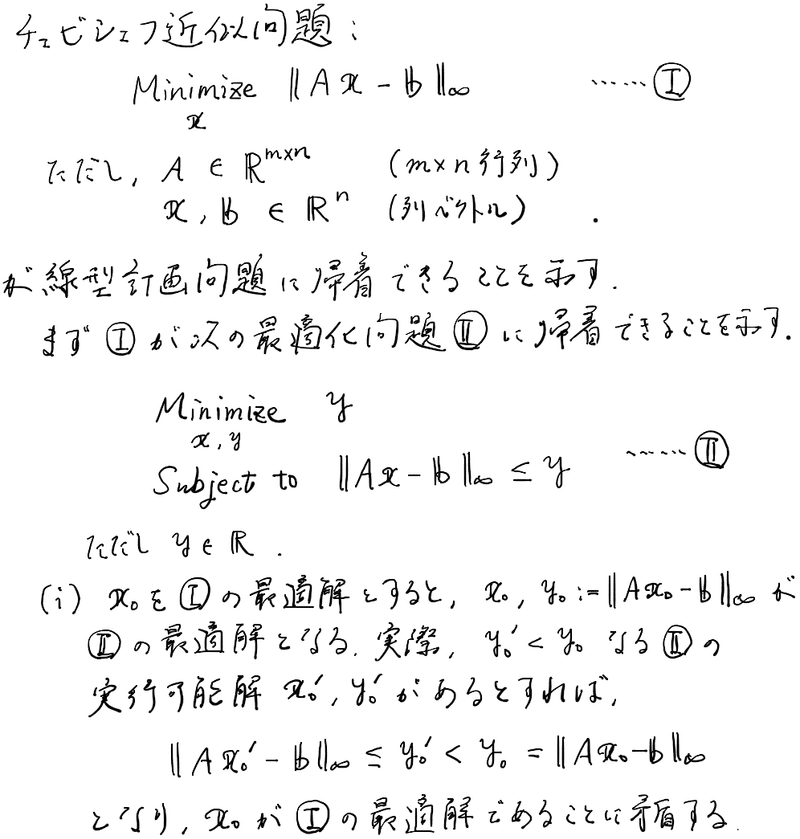 チェビシェフ近似問題:
Minimize ‖Ax - b‖∞ ……Ⅰ
x
ただし, A ∈ ℝ^{m×n} (m×n行列)
x, b ∈ ℝ^n (列ベクトル) .
が線型計画問題に帰着できることを示す.
まずⅠが次の最適化問題Ⅱに帰着できることを示す.
Minimize y
x, y
Subject to ‖Ax - b‖∞ ≤ y ……Ⅱ
ただし y ∈ ℝ .
(i) x₀をⅠの最適解とすると, x₀, y₀ := ‖Ax₀ - b‖∞ が
Ⅱの最適解となる. 実際, y₀' < y₀ なるⅡの
実行可能解 x₀', y₀' があるとすれば,
‖Ax₀' - b‖∞ ≤ y₀' < y₀ = ‖Ax₀ - b‖∞
となり, x₀がⅠの最適解であることに矛盾する.